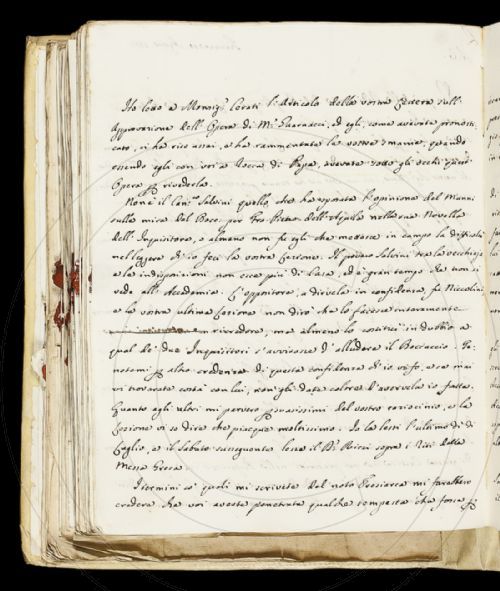 Ho letto a Monsig.r Cerati l'Articolo della vostra Lettera sull'
Approvazione dell'Opera di M.r Guarnacci, ed egli, come avevate pronosti
cato, vi ha riso assai, e ha rammentate le vostre smanie, quando
essendo egli con voi a Rocca di Papa, avevate sotto gli occhi quest'
Opera per rivederla.
Non è il Can.co Salvini quello, che ha esposta l'opinione del Manni
sulla mira del Bocc. per Fra Pietro dell'Aquila nella sua Novella
dell'Inquisitore, o almeno non fu egli che messe in campo la difficoltà
nel leggere ch'io feci la vostra Lezione. Il povero Salvini tra la vecchiaja
e le indisposizioni non esce più di Casa, ed è gran tempo che non si
vede all'Accademia. L'oppositore, a dirvela in confidenza, fu Niccolini
e la vostra ultima Lezione non dirò che lo facesse interamente
ricredere, ma almeno lo costituì in dubbio a
qual de' due Inquisitori s'avvisasse d'alludere il Boccaccio.
di questa confidenza ch'io vi fo, e se mai
vi trovaste costà con lui, non gli date calore d'avervela io fatta.
Quanto agli altri mi parvero persuasissimi del vostro raziocinio, e la
Lezione vi so dire che piacque moltissimo. Io la lessi l'ultimo di di
Luglio, e il Sabato susseguente lesse il P. Ricci sopra i Riti della
Messa Greca.
I termini co' quali mi scrivete del noto mi farebbero
credere che voi aveste penetrata qualche tempesta che fosse per